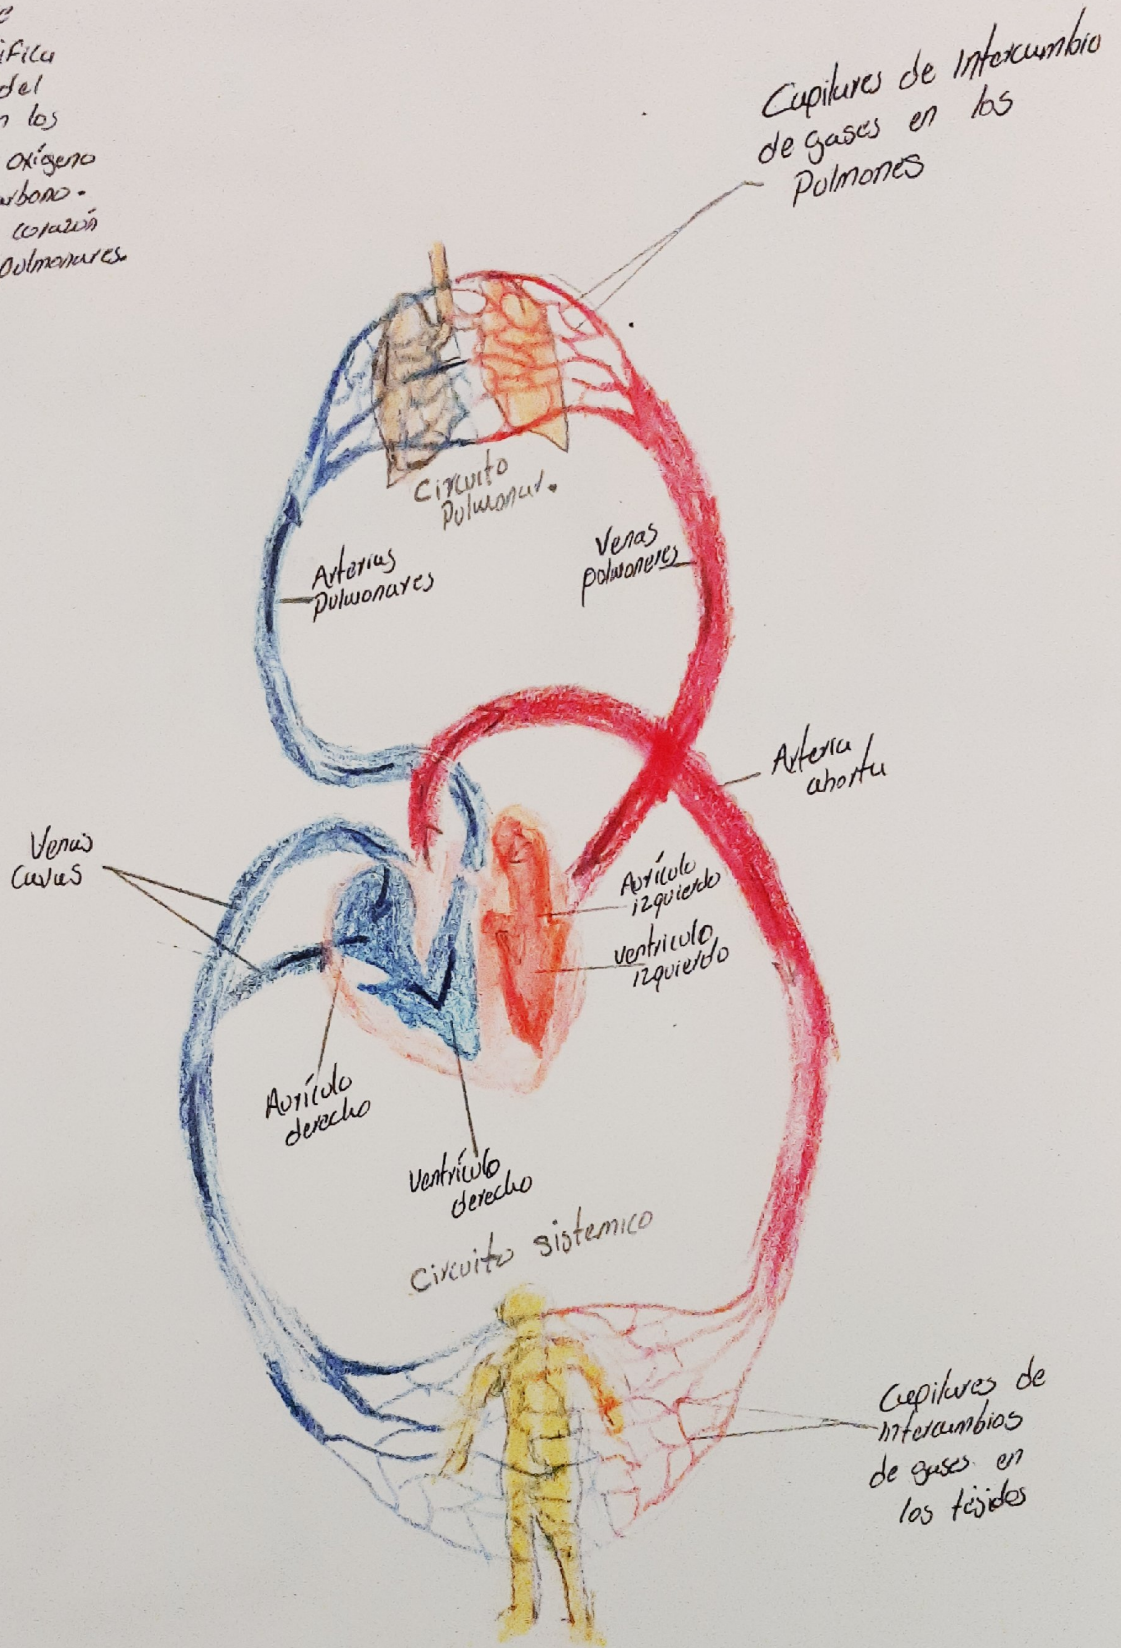 ifica
del
n los
oxígeno
arbono.
corazón
pulmonares.
Capilares de Intercambio
de gases en los
Pulmones
Circuito
Pulmonar.
Arterias
pulmonares
Venas
pulmoneres
Arteria
ahorta
Venas
Cavas
Aurículo
izquierdo
ventriculo
izquierdo
Aurículo
derecho
Ventrículo
derecho
Circuito sistemico
Capilares de
Intercambios
de gases en
los tejidos